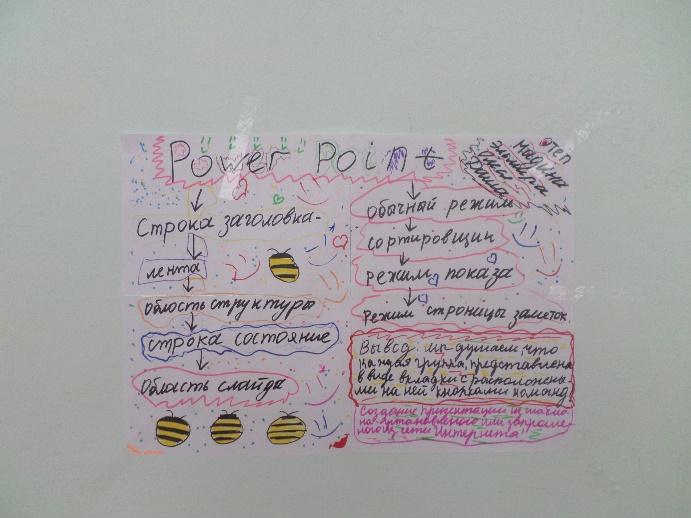 Power Point
Строка заголовка-
лента
область структуры
строка состояние
Область слайда
Обычный режим
сортировщик
режим показа
режим строницы заметок
Мадина
Вывод: мы думаем, что
каждая группа, представлена
в виде вкладки с расположены
ми на ней кнопками команд
Создание презентации из шабло
на установленного или запроше
ного из сети Интернета